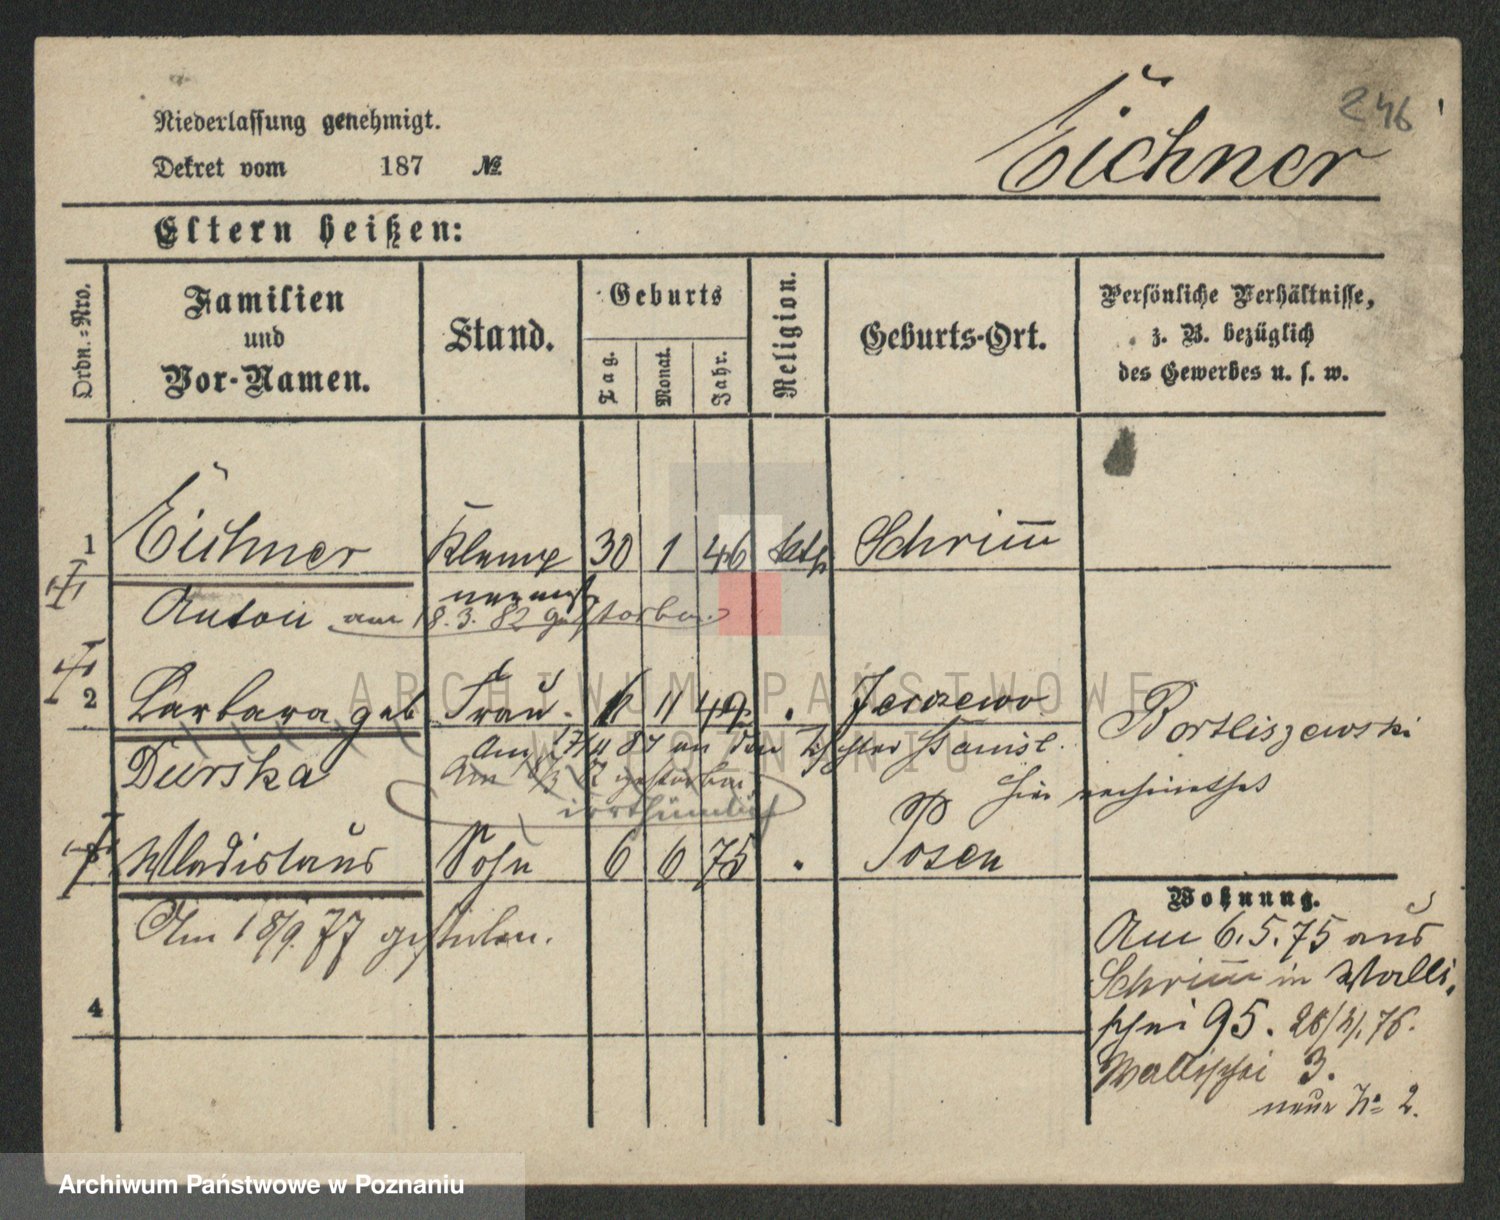 246
Niederlassung genehmigt.
Eichner
Dekret vom 187 №
Eltern heißen:
Ordn.-Nro.
Familien
und
Vor-Namen.
Stand.
Geburts
Tag.
Monat.
Jahr.
Religion.
Geburts-Ort.
Persönliche Verhältnisse,
z. B. bezüglich
des Gewerbes u. s. w.
1 Eichner Klemp 30 1 46 kath Schrimm
nermst.
Anton am 18.3.82 gestorben
2 Barbara geb Frau. 6 11 49 . Jerzewo
Durska
Am 17/11 87 an den Tischler Stanisl. Bortliszewski
hier verheirathet
Am 18/3 82 gestorben
irrthümlich
3 Wladislaus Sohn 6 6 75 . Posen
Am 18/9. 77 gestorben.
4
Wohnung.
Am 6.5.75 aus
Schrimm in Walli
schei 95. 28/3/.76.
Wallischei 3.
neue No 2.
ARCHIWUM PAŃSTWOWE
W POZNANIU
Archiwum Państwowe w Poznaniu